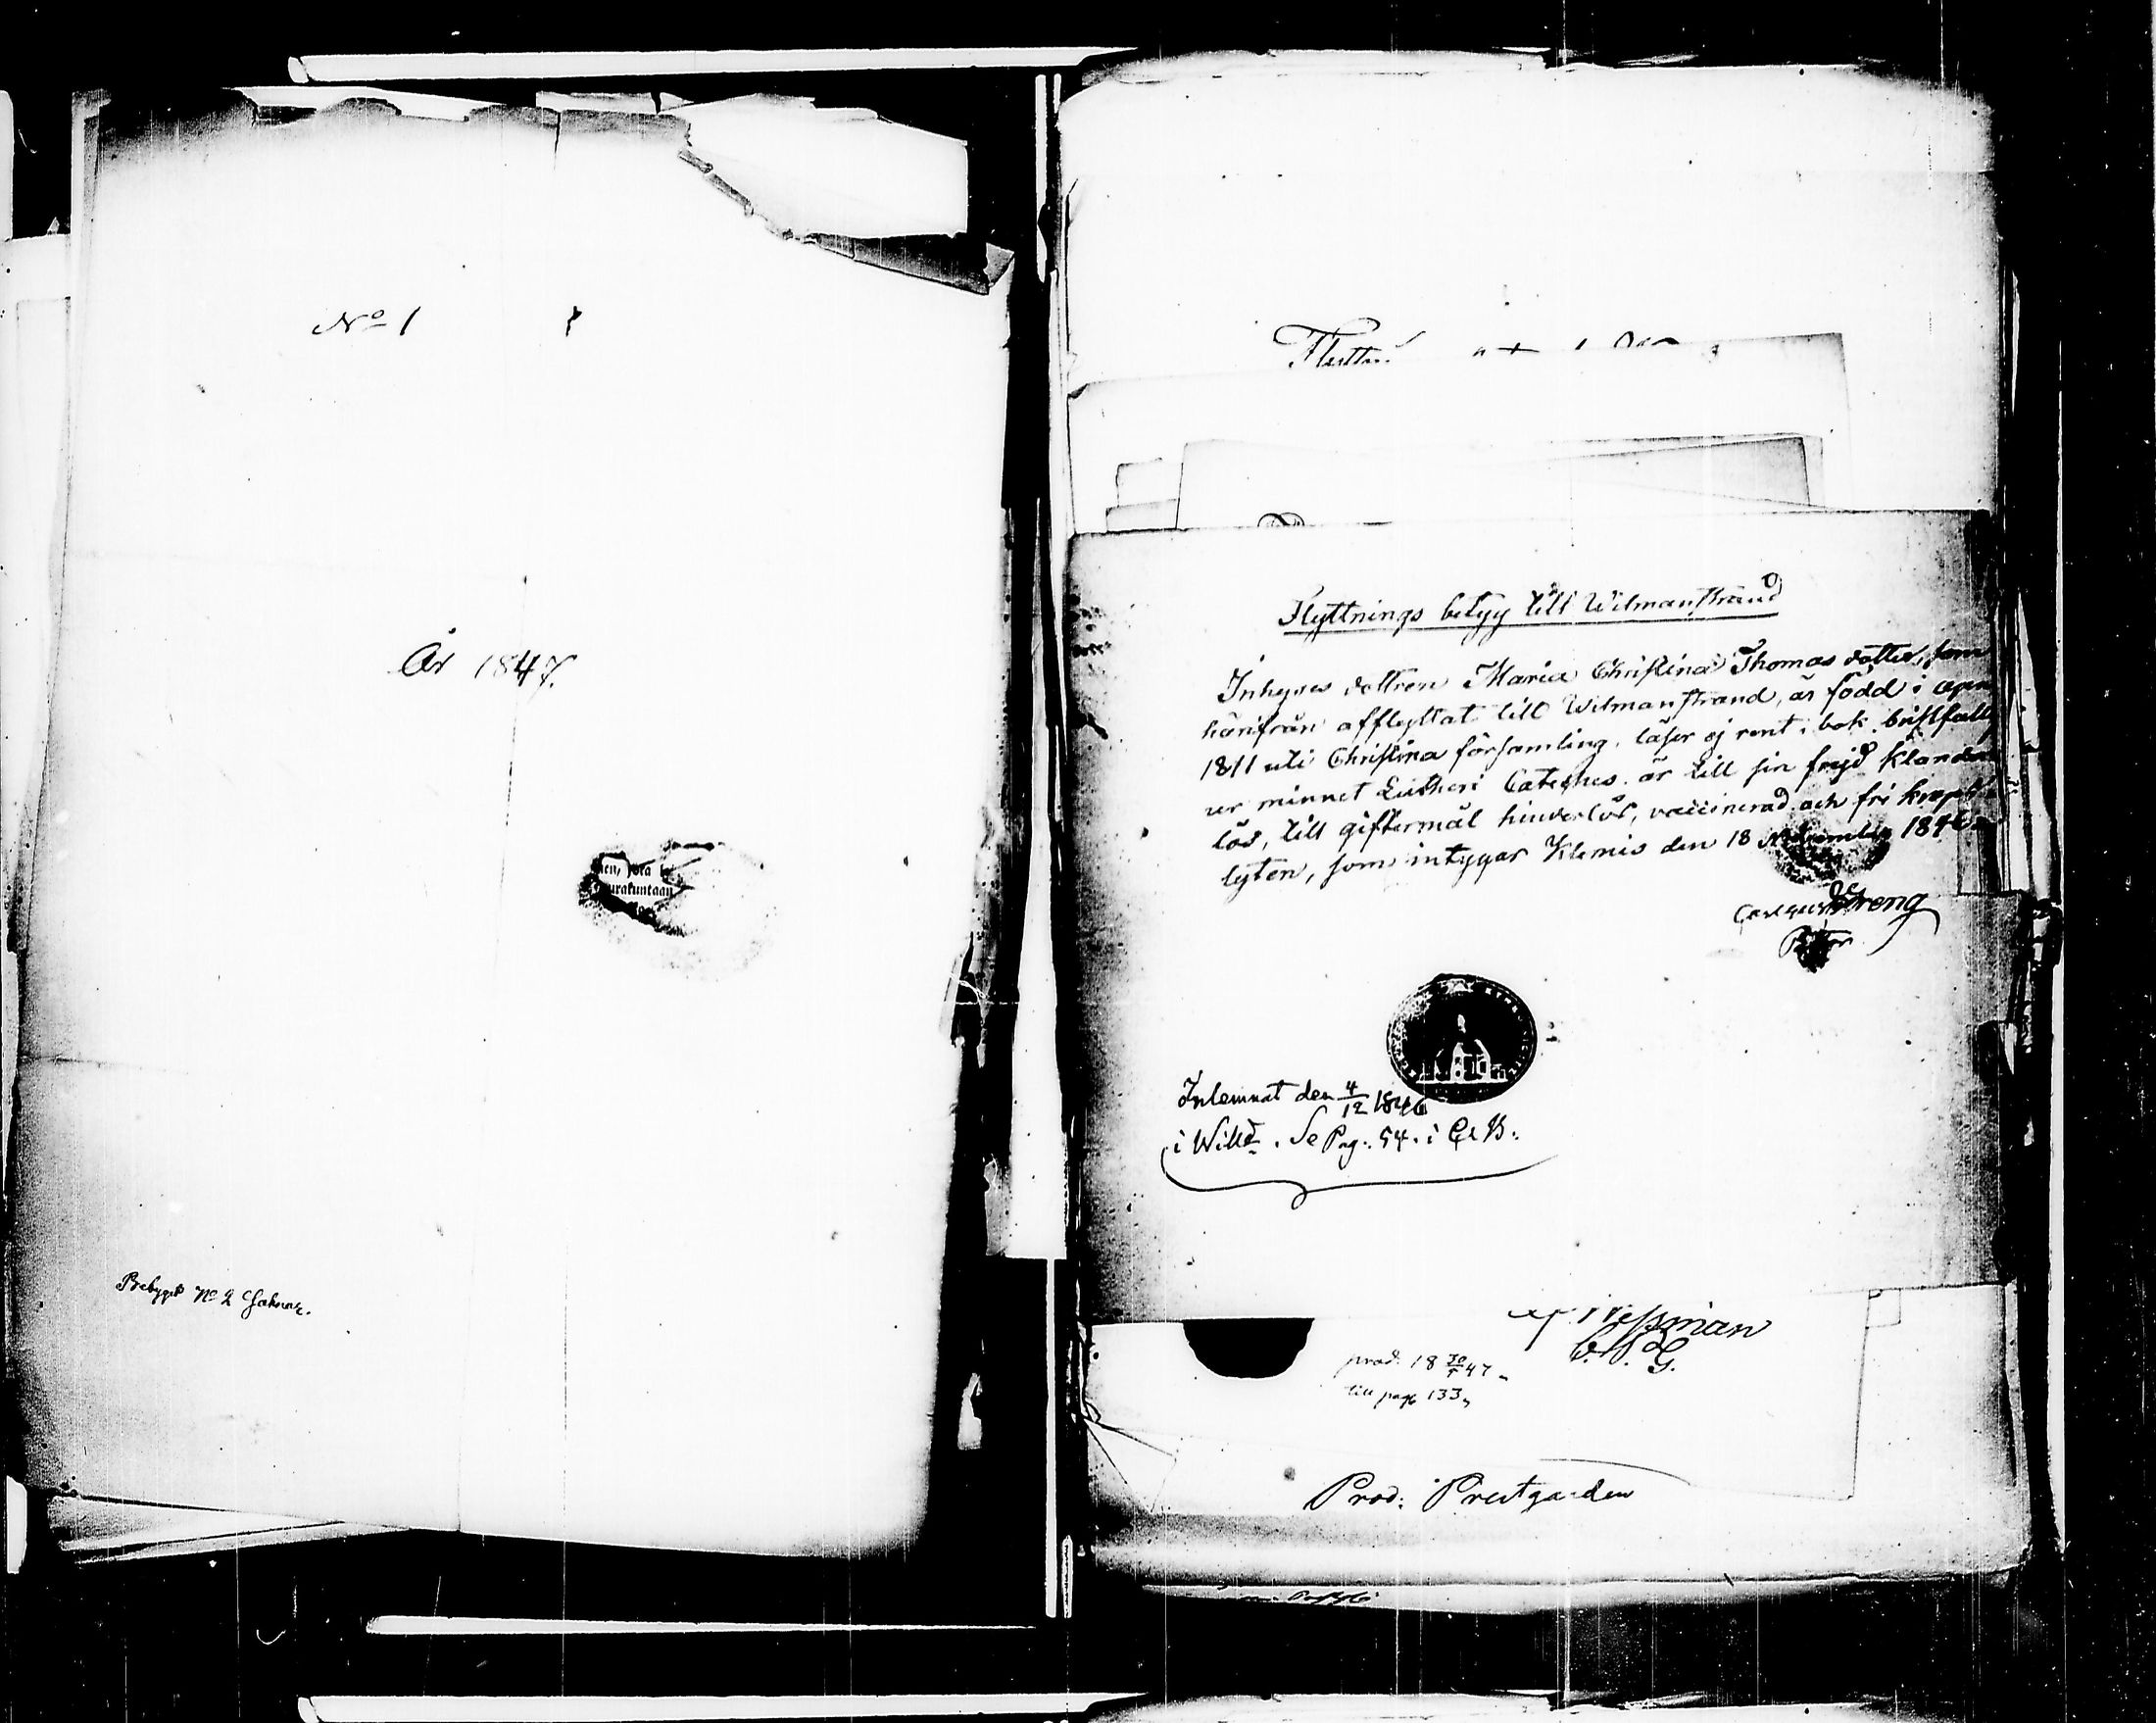 No 1
År 1847.
urakuntaan
Betyget No 2 Saknas.
Flyttnings betyg till Wilmanstrand
Inhyses dottren Maria Christina Thomas dotter, som
härifrån afflyttat till Wilmanstrand, är född i
1811 uti Christina församling, läser ej rent i bok, bristfällig
ur minnet Lutheri Cateches. är till sin frejd klander
lös, till giftermål hinderlös, vaccinerad och fri
lyten, som intygar Klemis den 18 November 1846
Streng
Pastor
Inlemnat den 4/12 1846
i Willd. Se Pag: 54. i
prod. 18 30/5 47
till pag 133
Prod: Prestgården